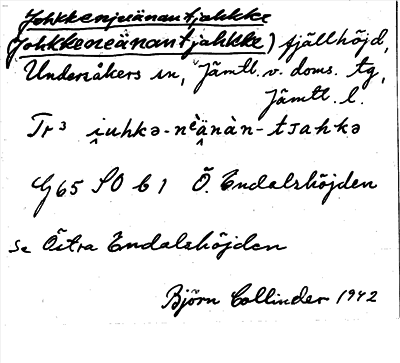 Johkkenjeänantjahkke
(Johkkeneänantjahkke) fjällhöjd,
Undersåkers sn, Jämtl. v. doms. tg,
Jämtl. l.
Tr³ i̭uhkə-nᵉ̀ä̭nàn-tsahkə
G65 SO b 1 Ö. Endalshöjden
se Östra Endalshöjden
Björn Collinder 1942